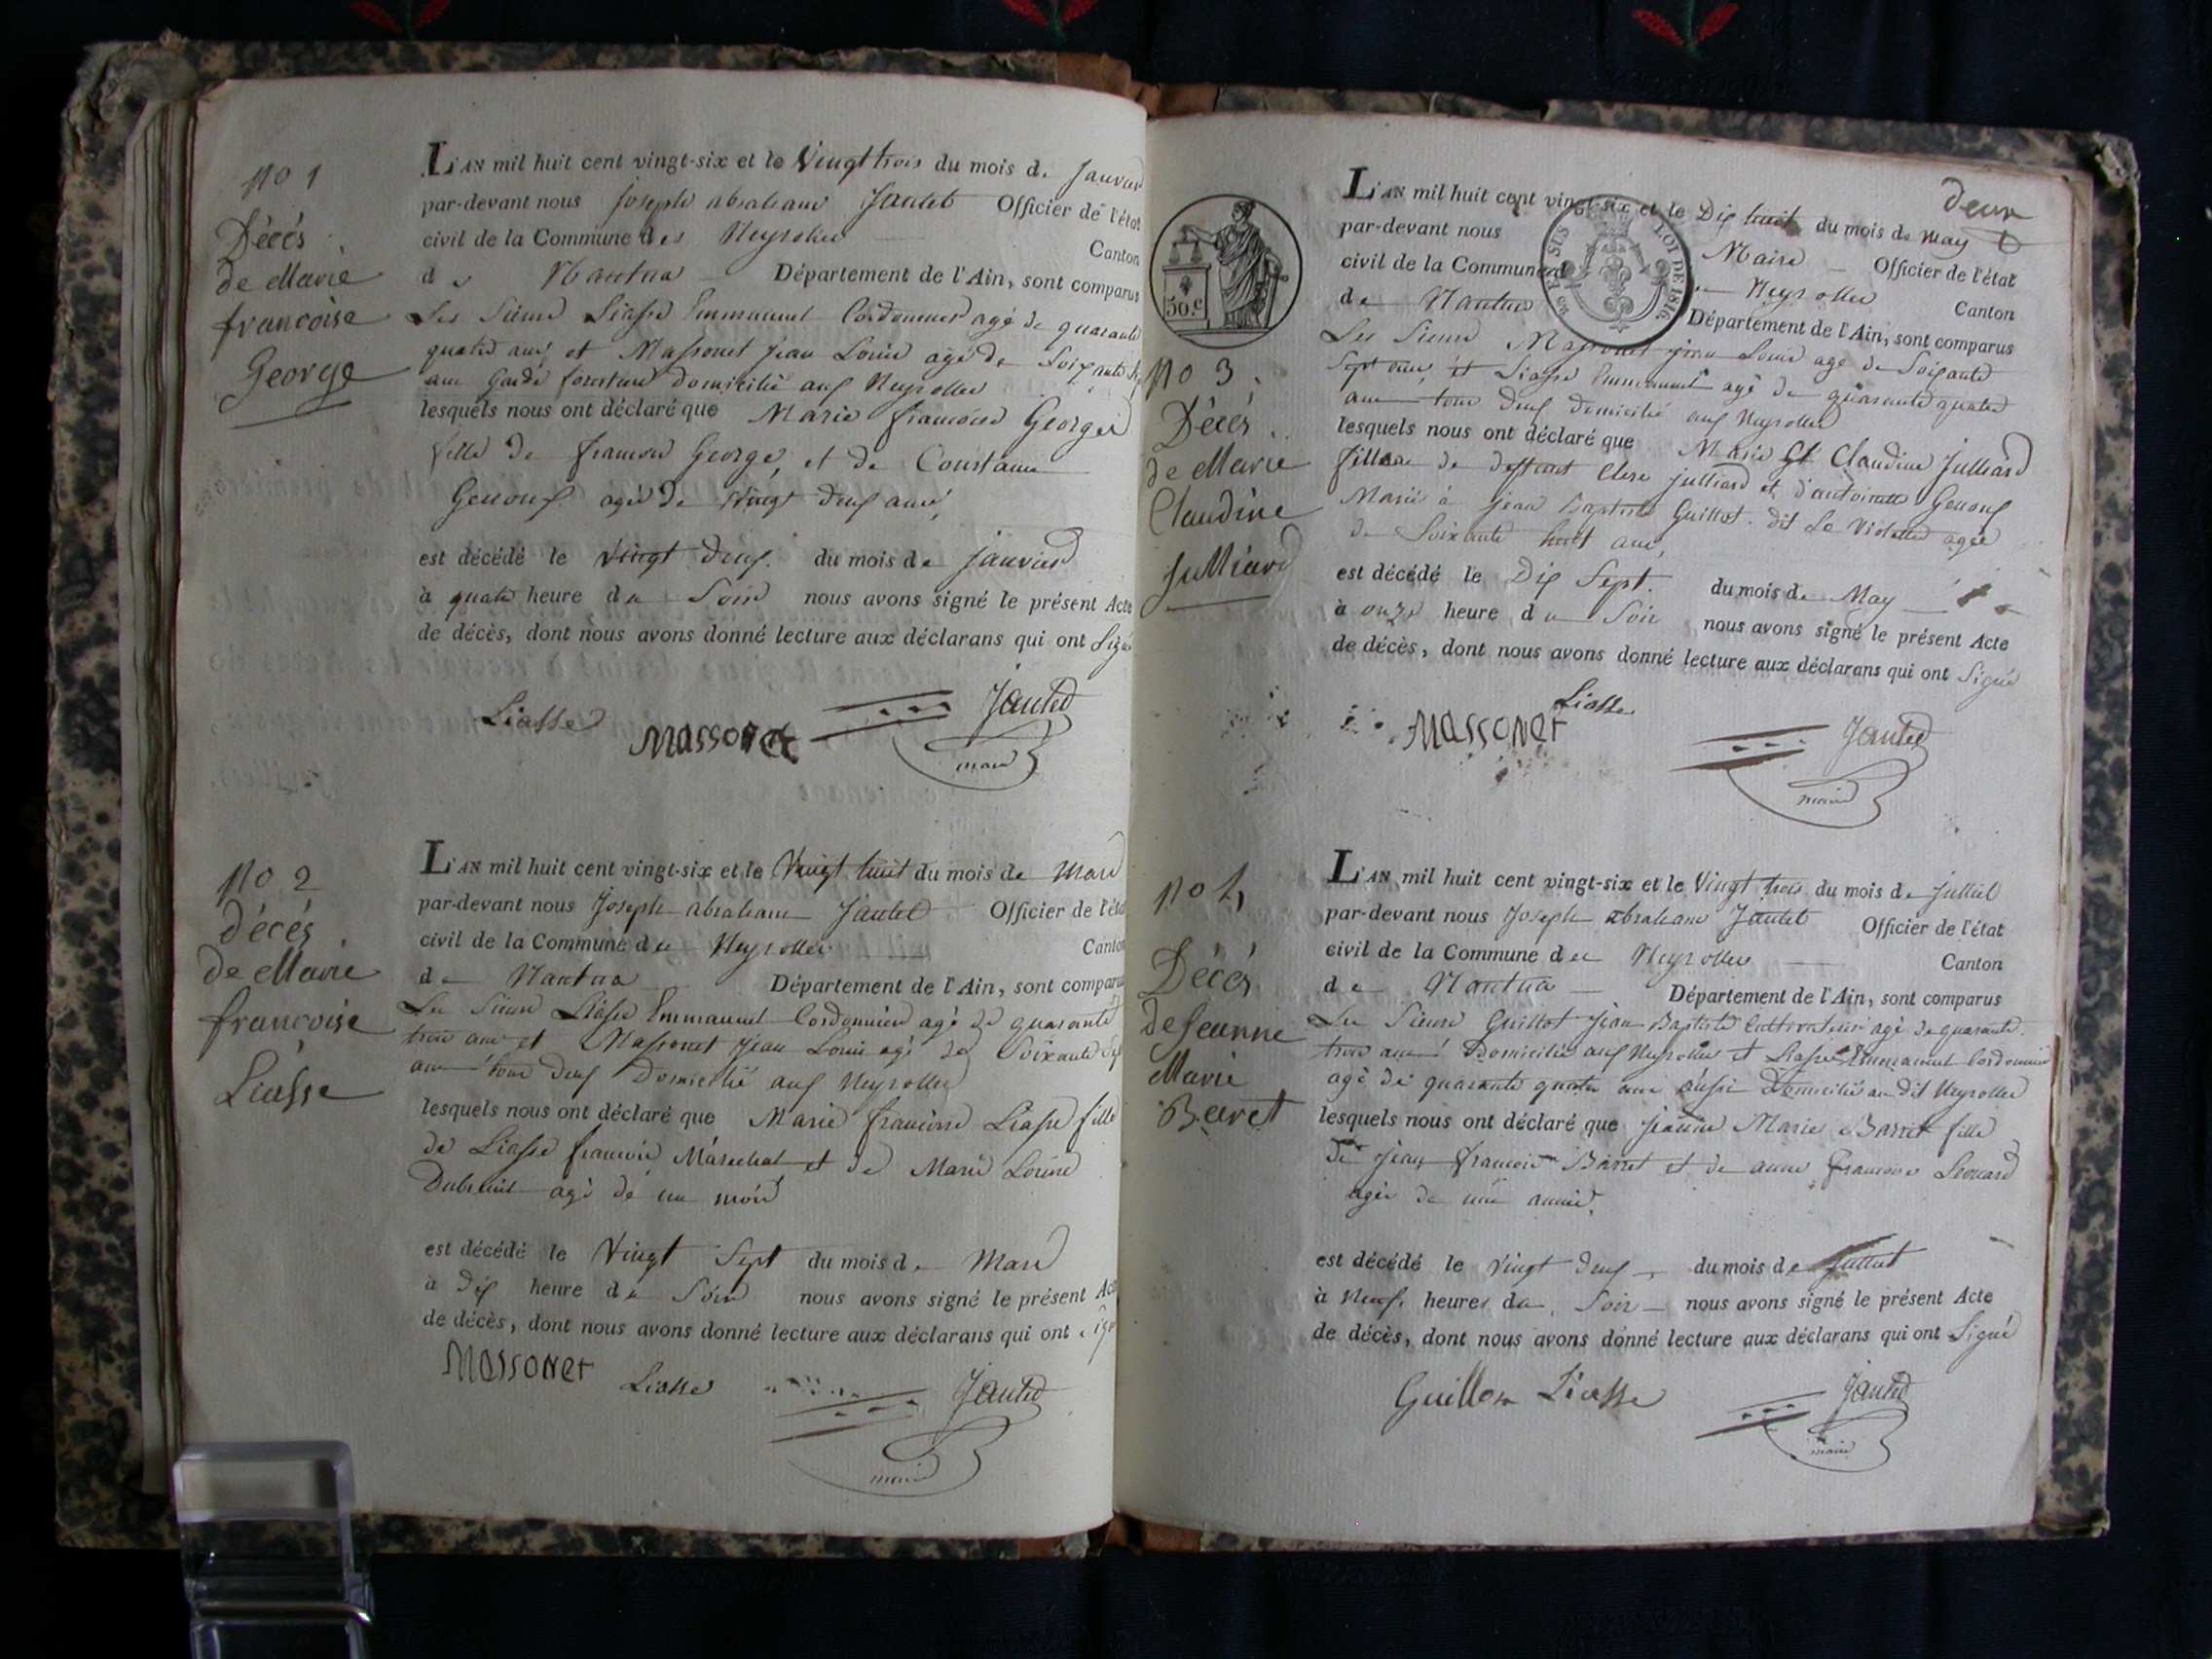 No 1
Décès
de Marie
francoise
George
L'AN mil huit cent vingt-six et le Vingt trois du mois de Janvier
par-devant nous joseph abraham Jantet Officier de l'état
civil de la Commune des Neyrolles Canton
de Nantua Département de l'Ain, sont comparus
Les Sieurs Liasse Emmanuel Cordonnier agé de quarante
quatre ans et Massonet jean Louis agé de Soixante
ans Garde forestier domicilié aux Neyrolles
lesquels nous ont déclaré que Marie francoise George
fille de francois George, et de Constance
Genoux agée de Vingt deux ans,
est décédé le Vingt deux du mois de janvier
à quatre heure du Soir nous avons signé le présent Acte
de décès, dont nous avons donné lecture aux déclarans qui ont Signé
Liasse
Massonet
Jantet
maire
No 2
décés
de Marie
francoise
Liasse
L'AN mil huit cent vingt-six et le Vingt huit du mois de Mars
par-devant nous Joseph abraham Jantet Officier de l'état
civil de la Commune des Neyrolles Canton
de Nantua Département de l'Ain, sont comparus
Les Sieurs Liasse Emmanuel Cordonnier agé de quarante
trois ans et Massonet jean Louis agé de Soixante Sept
ans tous deux Domicilié aux Neyrolles
lesquels nous ont déclaré que Marie francoise Liasse fille
de Liasse francois Maréchal et de Marie Louise
Dubreuil agé de un mois
est décédé le Vingt Sept du mois de Mars
à dix heure du Soir nous avons signé le présent Acte
de décès, dont nous avons donné lecture aux déclarans qui ont signé
Massonet
Liasse
Jantet
maire
deux
50.c
LOI DE 1816
No 3
Décés
de Marie
Claudine
Julliard
L'AN mil huit cent vingt-six et le Dix huit du mois de May
par-devant nous Maire Officier de l'état
civil de la Commune Neyrolles Canton
de Nantua Département de l'Ain, sont comparus
Les Sieurs Massonet jean Louis agé de Soixante
Sept ans, et Liasse Emmanuel agé de quarante quatre
ans tous deux domicilié aux Neyrolles
lesquels nous ont déclaré que Marie Claudine Julliard
fille de deffunt Julliard et d'antoinette Genoux
Mariée à jean Baptiste Guillot dit Le Violette agée
de Soixante huit ans,
est décédé le Dix Sept du mois de May
à onze heure du Soir nous avons signé le présent Acte
de décès, dont nous avons donné lecture aux déclarans qui ont Signé
Liasse
Massonet
Jantet
maire
No 4
Décés
de Jeanne
Marie
Barret
L'AN mil huit cent vingt-six et le Vingt trois du mois de juillet
par-devant nous Joseph abraham Jantet Officier de l'état
civil de la Commune des Neyrolles Canton
de Nantua Département de l'Ain, sont comparus
Les Sieurs Guillot Jean Baptiste Cultivateur agé de quarante
trois ans Domicilié aux Neyrolles et Liasse Emmanuel Cordonnier
agé de quarante quatre ans aussi Domicilié au dit Neyrolles
lesquels nous ont déclaré que jeanne Marie Barret fille
de jean francois Barret et de anne francoise
agée de une année,
est décédé le vingt deux du mois de juillet
à Neuf heures du Soir nous avons signé le présent Acte
de décès, dont nous avons donné lecture aux déclarans qui ont Signé
Guillot Liasse
Jantet
maire